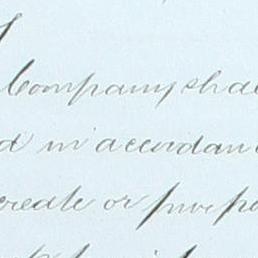 Company shal
d in accordan
create or